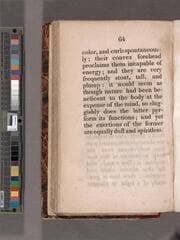 64
color, and curls spontaneous-
ly; their convex forehead
proclaims them incapable of
energy; and they are very
frequently stout, tall, and
plump: it would seem as
though nature had been be-
neficent to the body at the
expense of the mind, so slug-
gishly does the latter per-
form its functions; and yet
the exertions of the former
are equally dull and spiritless.